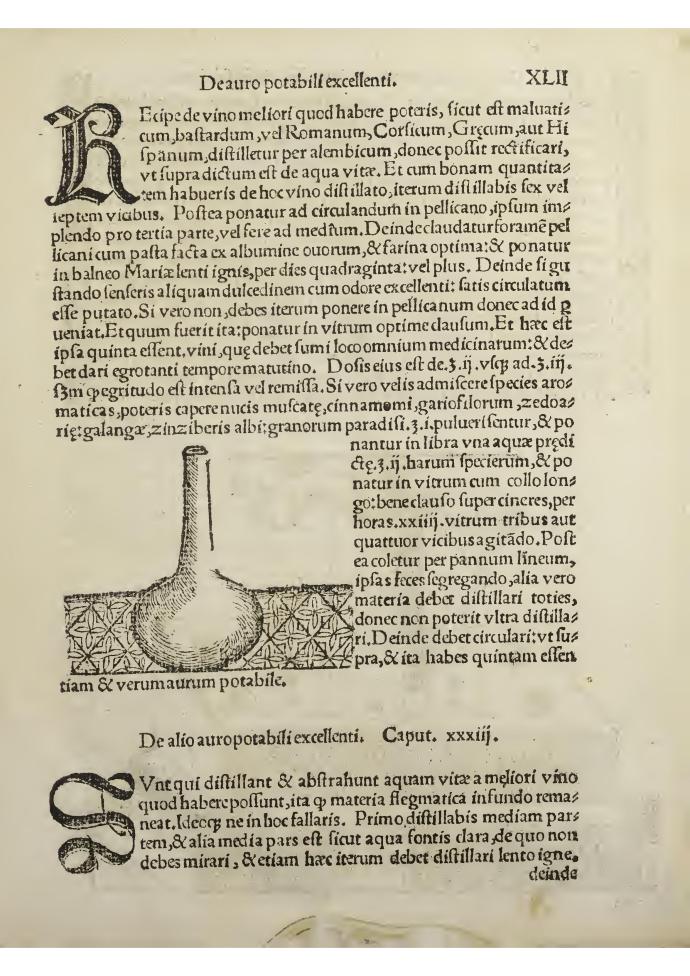 De auro potabili excellenti. XLII
REcipe de vino meliori quod habere poteris, sicut est maluati⸗
cum, bastardum, vel Romanum, Corsicum, Gręcum, aut Hi
spanum, distilletur per alembicum, donec possit rectificari,
vt supra dictum est de aqua vitæ. Et cum bonam quantita⸗
tem habueris de hoc vino distillato, iterum distillabis sex vel
septem vicibus. Postea ponatur ad circulandum in pellicano, ipsum im⸗
plendo pro tertia parte, vel fere ad medium. Deinde claudatur foramē pel
licani cum pasta facta ex albumine ouorum, & farina optima: & ponatur
in balneo Mariæ lenti ignis, per dies quadraginta: vel plus. Deinde si gu
stando senseris aliquam dulcedinem cum odore excellenti: satis circulatum
esse putato. Si vero non, debes iterum ponere in pellicanum donec ad id ꝑ
ueniat. Et quum fuerit ita: ponatur in vitrum optime clausum. Et hæc est
ipsa quinta essent. vini, quę debet sumi loco omnium medicinarum: & de⸗
bet dari egrotanti tempore matutino. Dosis eius est de .ʒ.ij. vsqꝫ ad .ʒ.iij.
ẜm ꝙ egritudo est intensa vel remissa. Si vero velis admiscere species aro⸗
maticas, poteris capere nucis muscatę, cinnamomi, gariofilorum, zedoa⸗
rię: galangæ, zinziberis albi: granorum paradisi .ʒ.i. puluerisentur, & po
nantur in libra vna aquæ prędi
ctę .ʒ.ij. harum specierum, & po
natur in vitrum cum collo lon⸗
go: bene clauso super cineres, per
horas .xxiiij. vitrum tribus aut
quattuor vicibus agitādo. Post
ea coletur per pannum lineum,
ipsas feces segregando, alia vero
materia debet distillari toties,
donec non poterit vltra distilla⸗
ri. Deinde debet circulari: vt su⸗
pra, & ita habes quintam essen
tiam & verum aurum potabile.
De alio auro potabili excellenti. Caput. xxxiij.
SVnt qui distillant & abstrahunt aquam vitæ a meliori vino
quod habere possunt, ita ꝙ materia flegmatica in fundo rema⸗
neat. Ideoqꝫ ne in hoc fallaris. Primo, distillabis mediam par⸗
tem, & alia media pars est sicut aqua fontis clara, de quo non
debes mirari, & etiam hæc iterum debet distillari lento igne.
deinde